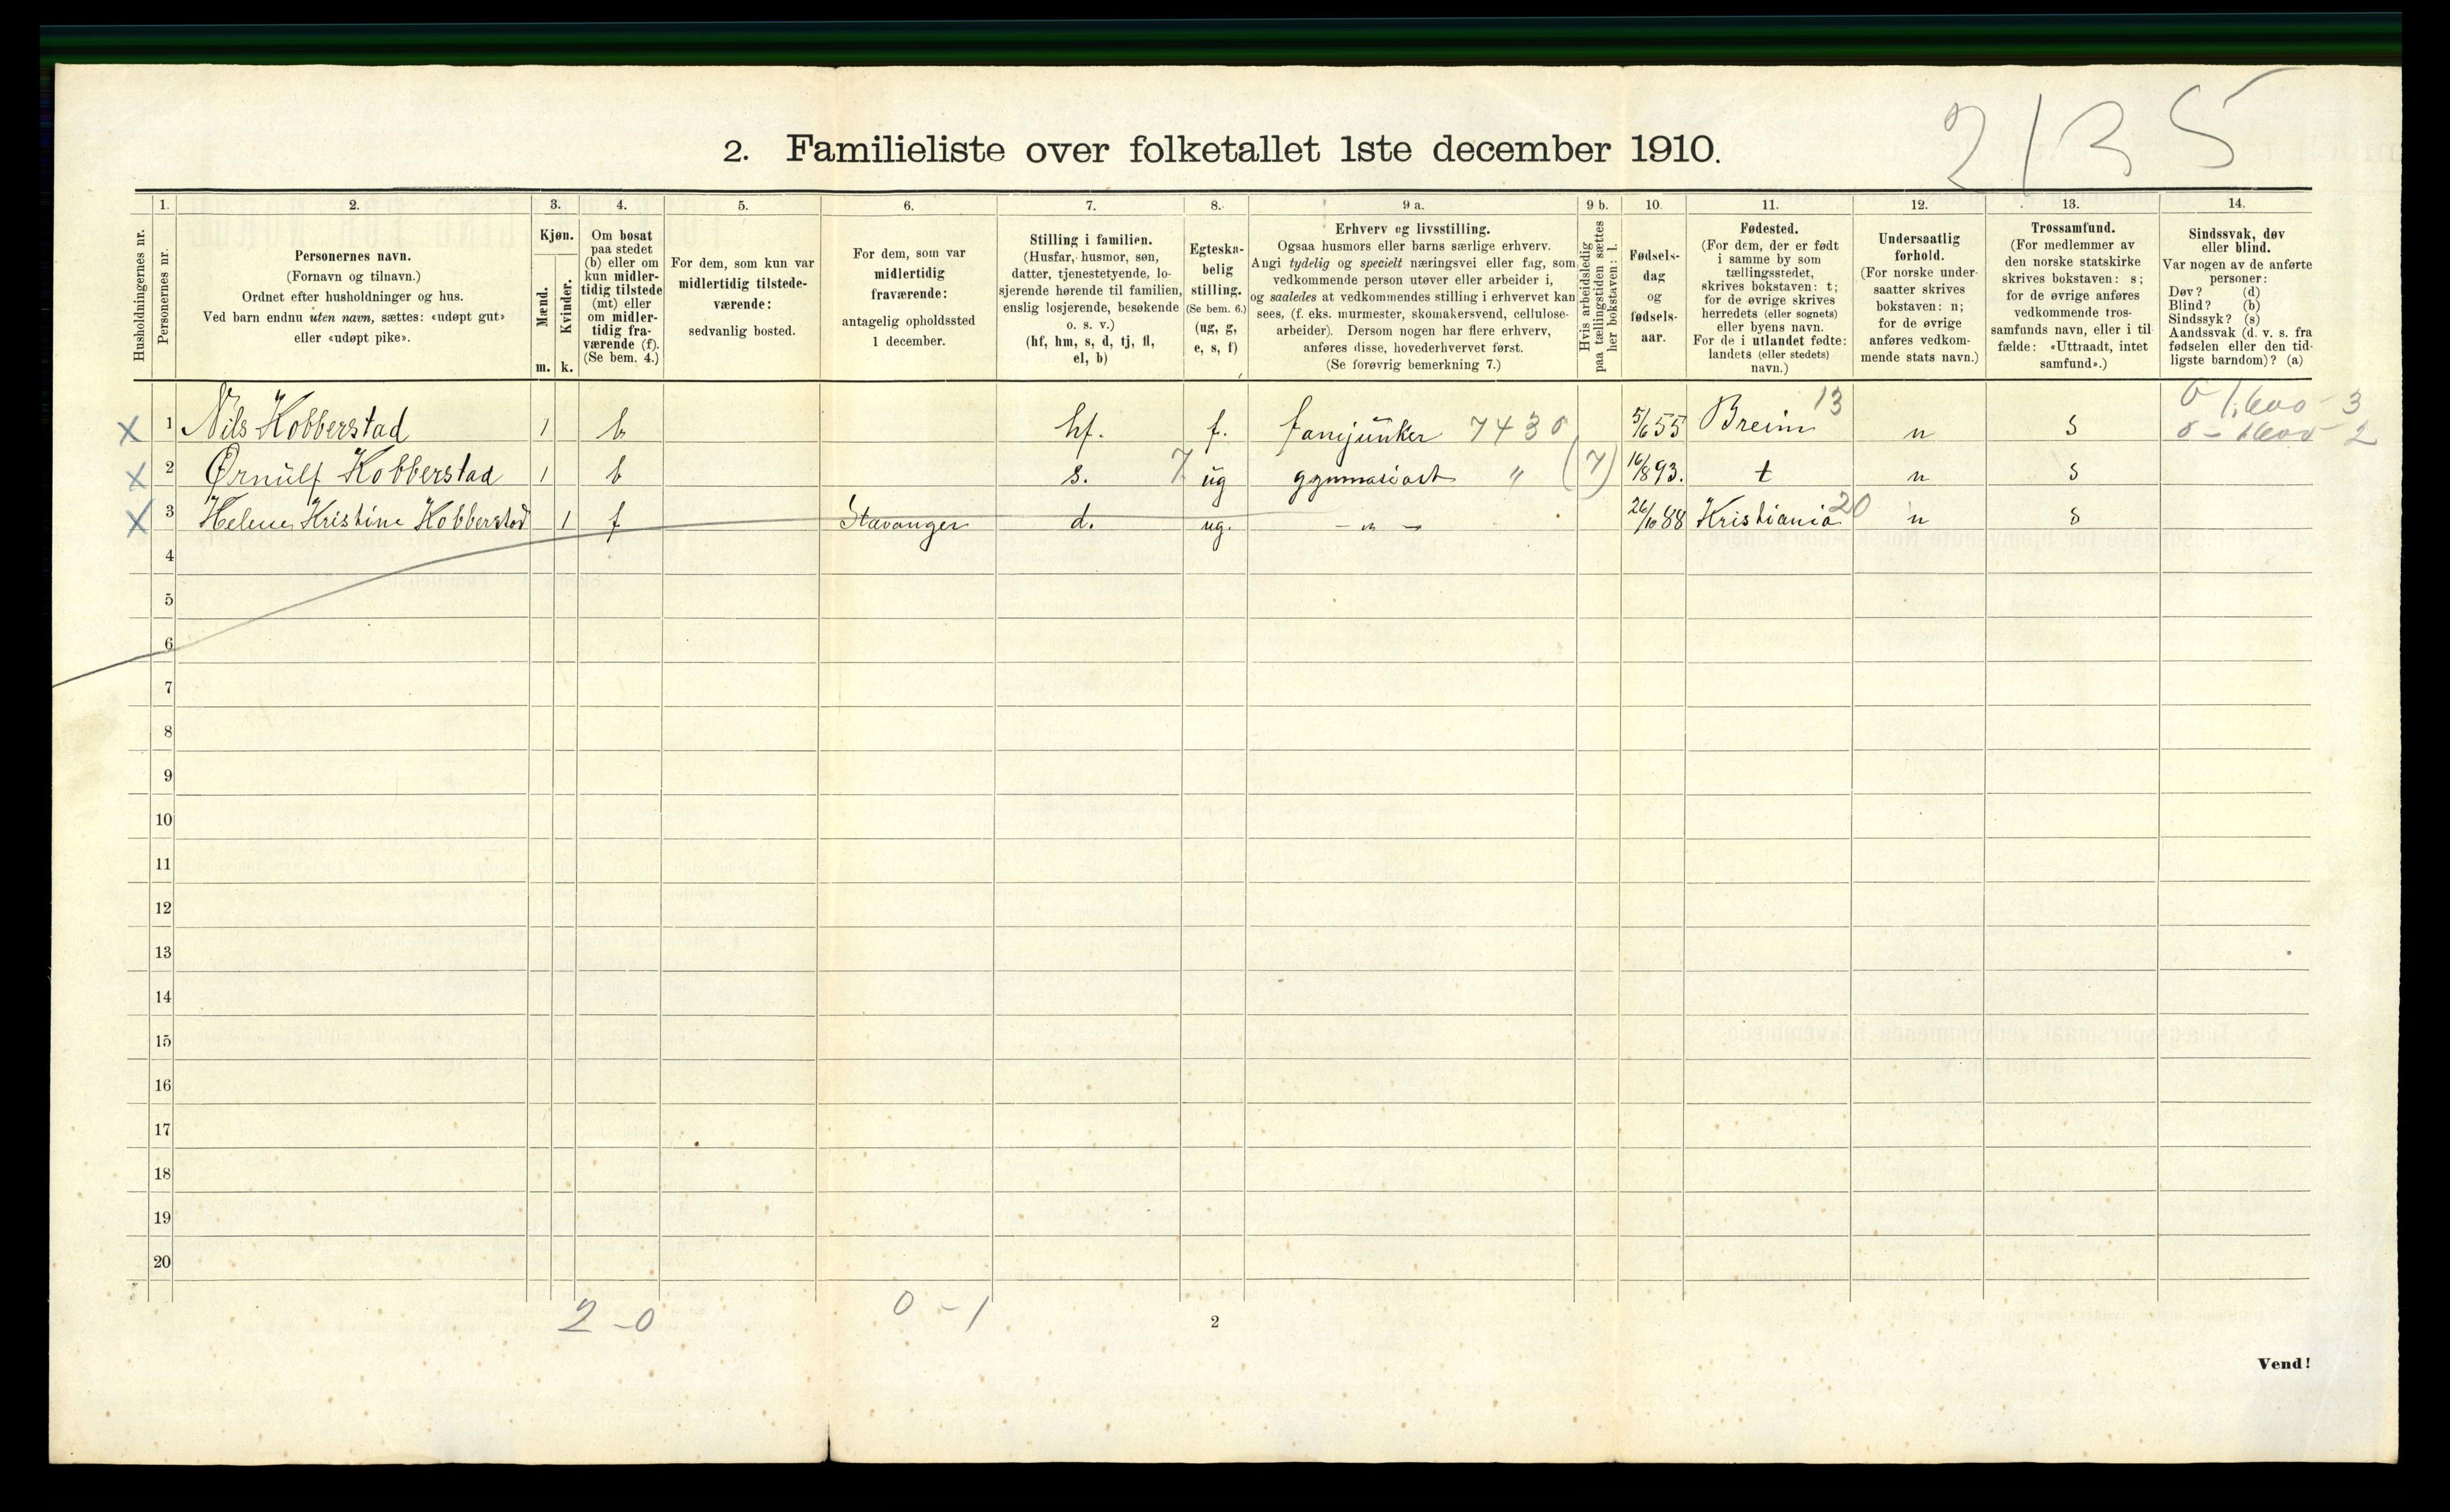 2135
2. Familieliste over folketallet 1ste december 1910.
Husholdningernes nr.
1. Personernes nr.
2. Personernes navn.
(Fornavn og tilnavn.)
Ordnet efter husholdninger og hus.
Ved barn endnu uten navn, sættes: «udøpt gut»
eller «udøpt pike».
3. Kjøn.
Mænd. m.
Kvinder. k.
4. Om bosat
paa stedet
(b) eller om
kun midler-
tidig tilstede
(mt) eller
om midler-
tidig fra-
værende (f).
(Se bem. 4.)
5. For dem, som kun var
midlertidig tilstede-
værende:
sedvanlig bosted.
6. For dem, som var
midlertidig
fraværende:
antagelig opholdssted
1 december.
7. Stilling i familien.
(Husfar, husmor, søn,
datter, tjenestetyende, lo-
sjerende hørende til familien,
enslig losjerende, besøkende
o. s. v.)
(hf, hm, s, d, tj, fl,
el, b)
8. Egteska-
belig
stilling.
(Se bem. 6.)
(ug, g,
e, s, f)
9 a. Erhverv og livsstilling.
Ogsaa husmors eller barns særlige erhverv.
Angi tydelig og specielt næringsvei eller fag, som
vedkommende person utøver eller arbeider i,
og saaledes at vedkommendes stilling i erhvervet kan
sees, (f. eks. murmester, skomakersvend, cellulose-
arbeider). Dersom nogen har flere erhverv,
anføres disse, hovederhvervet først.
(Se forøvrig bemerkning 7.)
9 b. Hvis arbeidsledig
paa tællingstiden sættes
her bokstaven: l.
10. Fødsels-
dag
og
fødsels-
aar.
11. Fødested.
(For dem, der er født
i samme by som
tællingsstedet,
skrives bokstaven: t;
for de øvrige skrives
herredets (eller sognets)
eller byens navn.
For de i utlandet fødte:
landets (eller stedets)
navn.)
12. Undersaatlig
forhold.
(For norske under-
saatter skrives
bokstaven: n;
for de øvrige
anføres vedkom-
mende stats navn.)
13. Trossamfund.
(For medlemmer av
den norske statskirke
skrives bokstaven: s;
for de øvrige anføres
vedkommende tros-
samfunds navn, eller i til-
fælde: «Uttraadt, intet
samfund».)
14. Sindssvak, døv
eller blind.
Var nogen av de anførte
personer:
Døv? (d)
Blind? (b)
Sindssyk? (s)
Aandssvak (d. v. s. fra
fødselen eller den tid-
ligste barndom)? (a)
X 1 Nils Hobberstad 1 b hf. f. fanejunker 7430 5/6 55 Breim 13 n s
X 2 Ørnulf Hobberstad 1 b s. 7 ug gymnasiast " (7) 16/8 93. t n s
X 3 Helene Kristine Hobberstad 1 f Stavanger d. ug. — " — 26/10 88 Kristiania 20 n s
4
5
6
7
8
9
10
11
12
13
14
15
16
17
18
19
20
2-0 0-1
2
Vend!